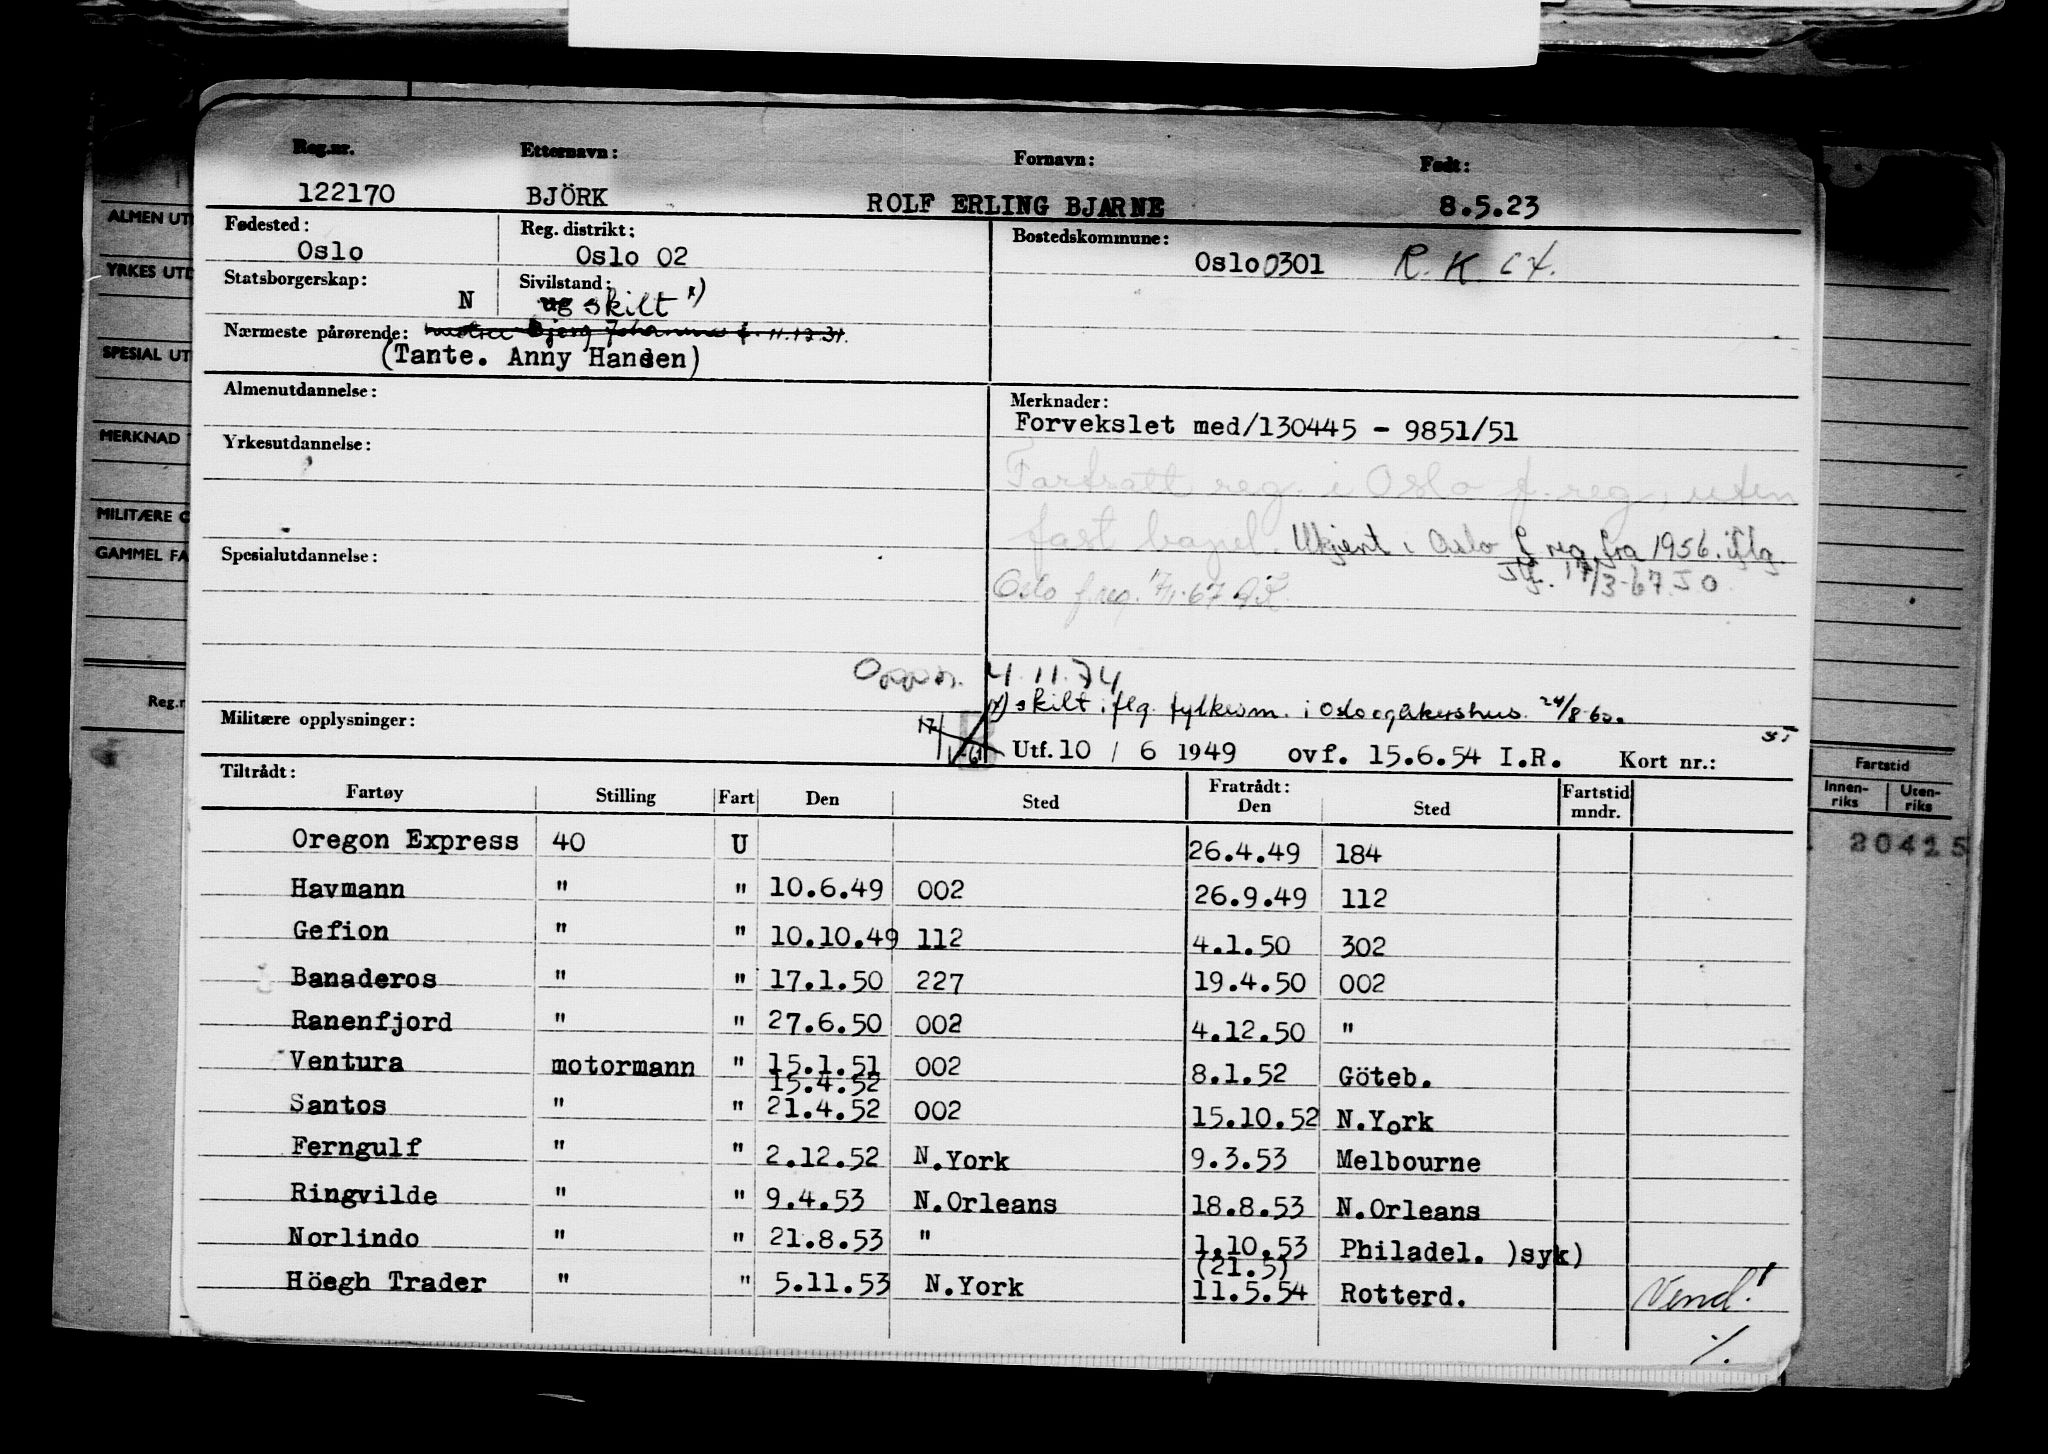 Reg.nr. Etternavn: Fornavn: Født:
122170 BJÖRK ROLF ERLING BJARNE 8.5.23
Fødested: Reg. distrikt: Bostedskommune:
Oslo Oslo 02 Oslo 0301 R.K.
Statsborgerskap: Sivilstand:
N ug skilt x)
Nærmeste pårørende: hustru Bjørg Johanna f. 11.12.31.
(Tante. Anny Hansen)
Almenutdannelse: Merknader:
Forvekslet med/130445 - 9851/51
Yrkesutdannelse:
Fortsatt reg. i Oslo f.reg. uten
fast bopel. Ukjent i Oslo f.reg. fra 1956. iflg.
Spesialutdannelse: 17/3-67. J O
Oslo f.reg. 67
Oppr. 4.11.74
x) skilt iflg. fylkesm. i Oslo og Akershus 24/8-60.
Militære opplysninger: 17/1-61 Utf. 10 / 6 1949 ovf. 15.6.54 I.R. Kort nr.:
Tiltrådt: Fratrådt:
Fartøy Stilling Fart Den Sted Den Sted Fartstid mndr.
Oregon Express 40 U 26.4.49 184
Havmann " " 10.6.49 002 26.9.49 112
Gefion " " 10.10.49 112 4.1.50 302
Banaderos " " 17.1.50 227 19.4.50 002
Ranenfjord " " 27.6.50 002 4.12.50 "
Ventura motormann " 15.1.51 002 8.1.52 Göteb.
15.4.52
Santos " " 21.4.52 002 15.10.52 N.York
Ferngulf " " 2.12.52 N.York 9.3.53 Melbourne
Ringvilde " " 9.4.53 N.Orleans 18.8.53 N.Orleans
Norlindo " " 21.8.53 " 1.10.53 Philadel. )syk)
(21.5)
Höegh Trader " " 5.11.53 N.York 11.5.54 Rotterd. Vend!
./.
ALMEN UT
YRKES UTD
SPESIAL UT
MERKNAD
MILITÆRE O
GAMMEL FA
Reg.n
Fartstid
Innen-riks Uten-riks
20415